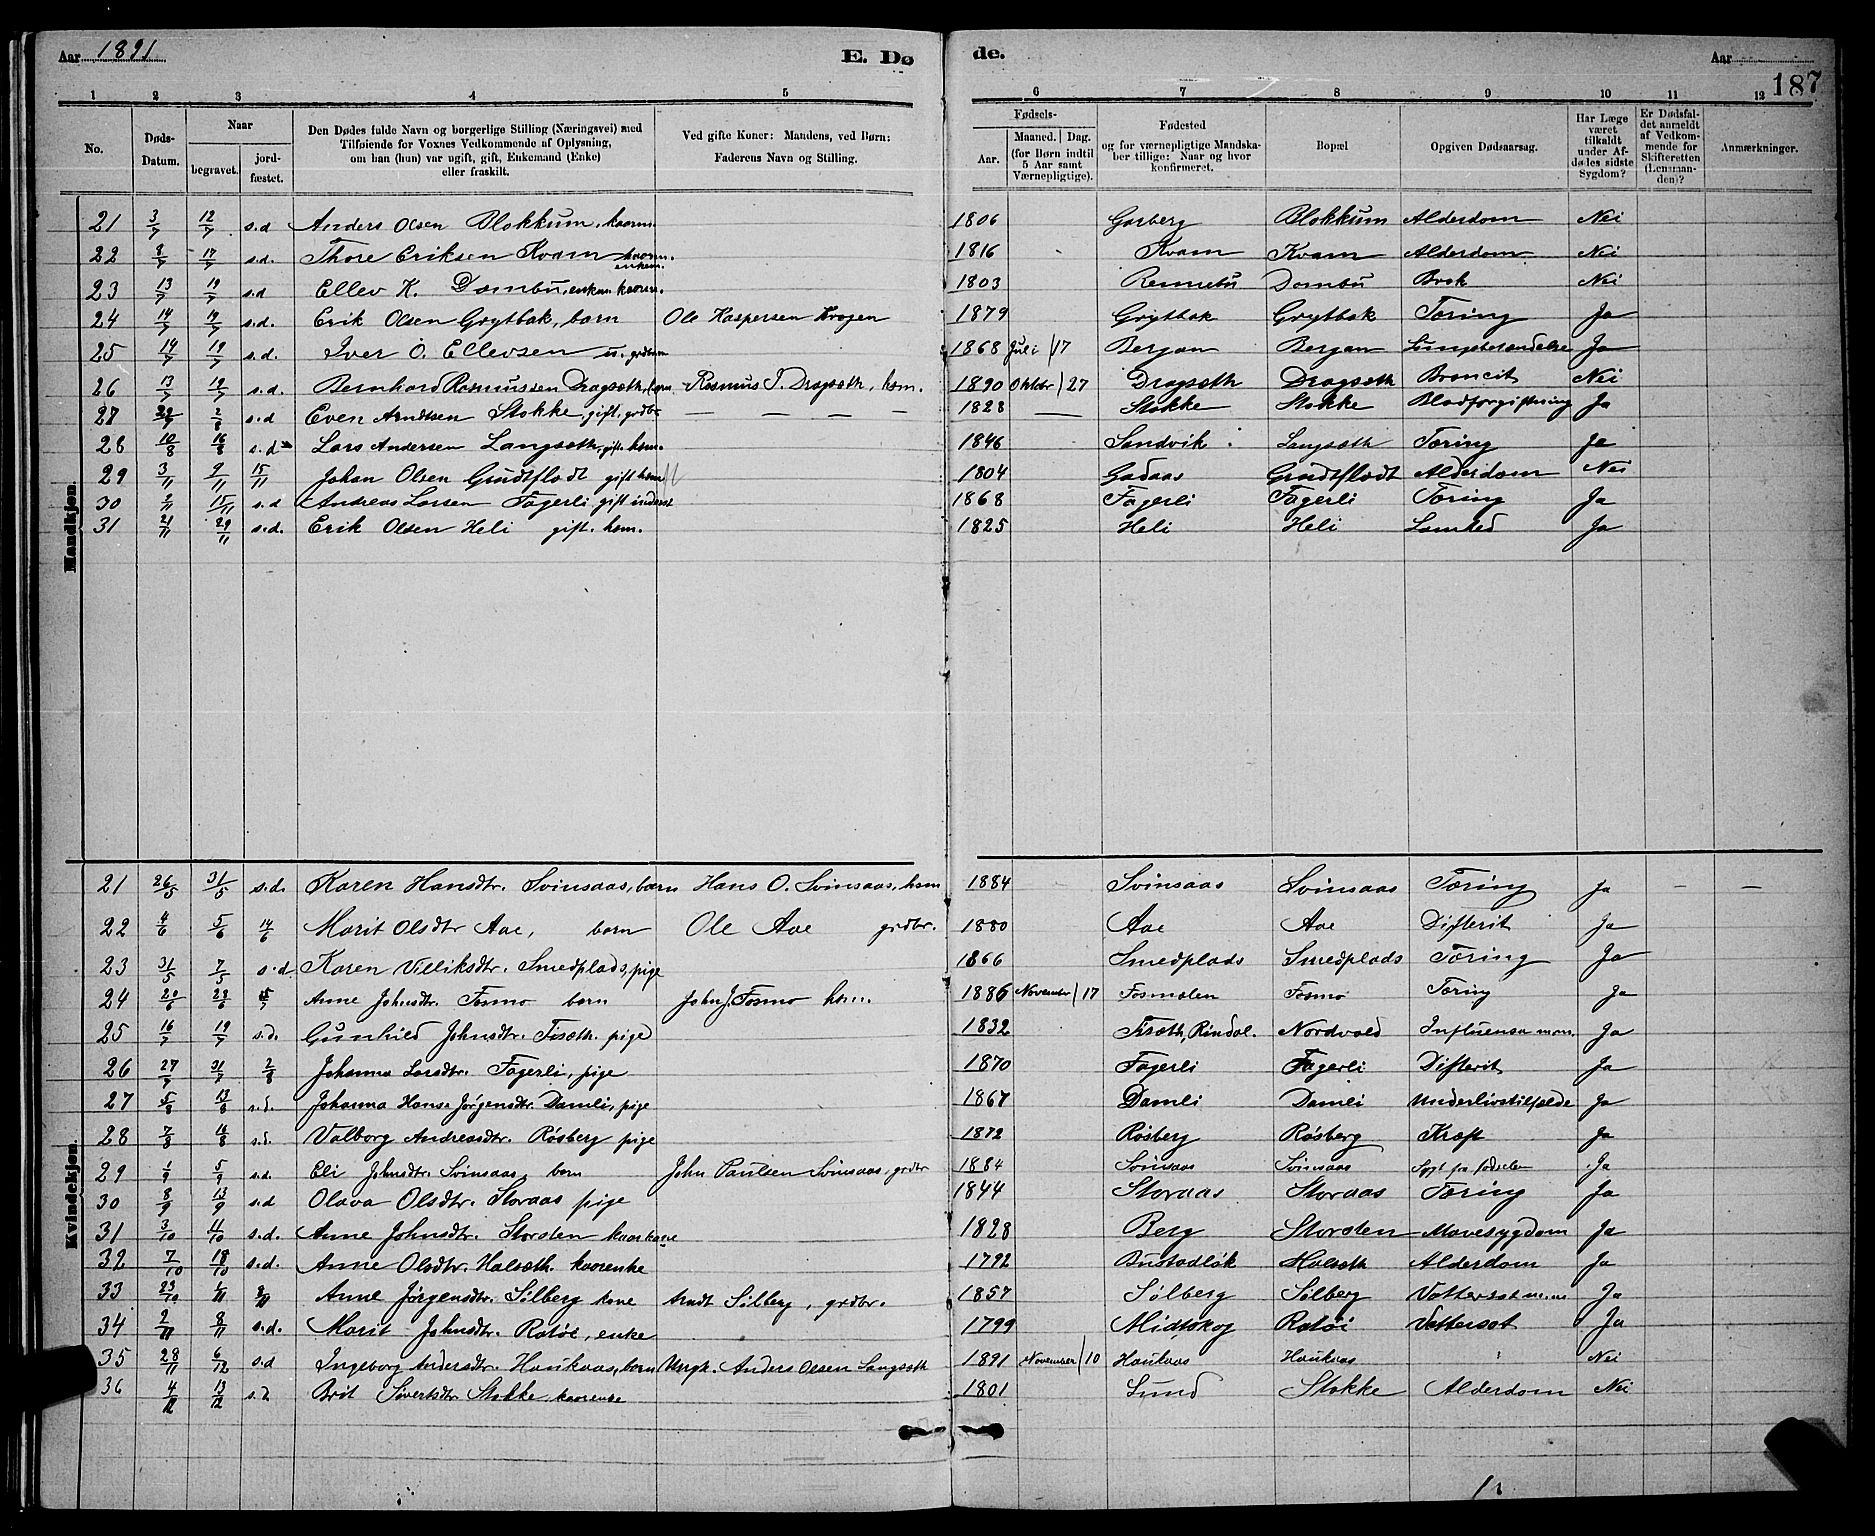 Aar 1891 E. Dø de. Aar
187
1 2 3 4 5 6 7 8 9 10 11 12
No. Døds-Datum. Naar begravet. jord-fæstet. Den Dødes fulde Navn og borgerlige Stilling (Næringsvei) med Tilføiende for Voxnes Vedkommende af Oplysning, om han (hun) var ugift, gift, Enkemand (Enke) eller fraskilt. Ved gifte Koner: Mandens, ved Børn: Faderens Navn og Stilling. Fødsels- Aar. Maaned. Dag. (for Børn indtil 5 Aar samt Værnepligtige). Fødested og for værnepligtige Mandskaber tillige: Naar og hvor konfirmeret. Bopæl Opgiven Dødsaarsag. Har Læge været tilkaldt under Afdødes sidste Sygdom? Er Dødsfaldet anmeldt af Vedkommende for Skifteretten (Lensmanden)? Anmærkninger.
Mandkjøn.
21 3/7 12/7 s.d Anders Olsen Blokkum, kaarm. 1806 Garberg Blokkum Alderdom Nei
22 8/7 17/7 s.d. Thore Eriksen Kvam kaarm. enkem. 1816 Kvam Kvam Alderdom Nei
23 13/7 19/7 s.d Ellev K. Dombu, enkem. kaarm. 1803 Rennebu Dombu Brok Nei
24 14/7 19/7 s.d. Erik Olsen Grytbak, barn Ole Kaspersen Krogen 1879 Grytbak Grytbak Tæring Ja
25 14/7 19/7 s.d. Iver O. Ellevsen u. grdbrm 1868 Juli 17 Bergan Bergan Lungebetændelse Ja
26 13/7 19/7 s.d. Bernhard Rasmussen Dragsæth, barn Rasmus J. Dragsæth, hsm. 1890 Oktbr 27 Dragsæth Dragsæth Broncit Nei
27 22/7 2/8 s.d Even Arndtsen Stokke, gift, grdbr — — — — 1828 — Stokke Stokke Blodforgiftning Ja
28 10/8 16/8 s.d Lars Andersen Langsæth, gift. hsm. 1846 Sandvik Langsæth Tæring Ja
29 3/11 9/11 15/11 Johan Olsen Grudtflødt gift hsm 1804 Gadaas Grudtflødt Alderdom Nei
30 9/11 15/11 s.d Andreas Larsen Fagerli gift inderst 1868 Fagerli Fagerli Tæring Ja
31 21/11 29/11 s.d. Erik Olsen Heli gift. hsm. 1825 Heli Heli Lamhed Ja
Kvindekjøn.
21 26/5 31/5 s.d. Karen Hansdtr. Svinsaas, barn Hans O. Svinsaas, hsm 1884 Svinsaas Svinsaas Tæring Ja — —
22 4/6 5/6 14/6 Marit Olsdtr Aae, barn Ole Aae grdbr. 1880 Aae Aae Difterit Ja
23 31/5 7/5 s.d Karen Villiksdtr. Smedplads, pige 1866 Smedplads Smedplads Tæring Ja
24 20/6 28/6 5/7 Anne Johnsdtr. Fosmo barn John J. Fosmo hsm. 1886 November 17 Fosmoen Fosmo Tæring Ja
25 16/7 19/7 s.d. Gunhild Johnsdtr. Tiseth. pige 1832 Tiseth, Rindal. Nordvold Influensa Ja
26 27/7 31/7 2/8 Johanna Larsdtr. Fagerli, pige 1870 Fagerli Fagerli Difterit Ja
27 5/8 13/8 s.d. Johanna Hans Jørgensdtr. Damli, pige 1867 Damli Damli Underlivstilfælde Ja
28 7/8 16/8 s.d. Valborg Andreasdtr. Røsberg pige 1872 Røsberg Røsberg Kræft Ja
29 1/9 5/9 s.d. Eli Johnsdtr. Svinsaas, barn John Paulsen Svinsaas, grdbr 1884 Svinsaas Svinsaas Sygt fra fødselen Ja
30 8/9 13/9 s.d Olava Olsdtr. Storaas pige 1844 Storaas Storaas Tæring Ja
31 3/10 11/10 s.d. Anne Johnsdtr. Storsten kaarkone 1828 Berg Storsten Mavesygdom Ja
32 7/10 18/10 s.d. Anne Olsdtr. Halsæth. kaarenke 1792 Bustadløk Halsæth Alderdom Ja
33 23/10 1/11 8/11 Anne Jørgensdtr. Sølberg kone Arndt Sølberg, grdbr. 1857 Sølberg Sølberg Vattersot Ja
34 2/11 8/11 s.d. Marit Johnsdtr. Ratøi, enke 1799 Midtskog Ratøi Vattersot Ja
35 28/11 6/12 s.d Ingeborg Andersdtr. Haukaas, barn Ungk. Anders Olsen Langsæth 1891 November 10 Haukaas Haukaas " Nei
36 4/12 13/12 s.d Brit Sivertsdtr Stokke kaarenke 1801 Lund Stokke Alderdom Nei